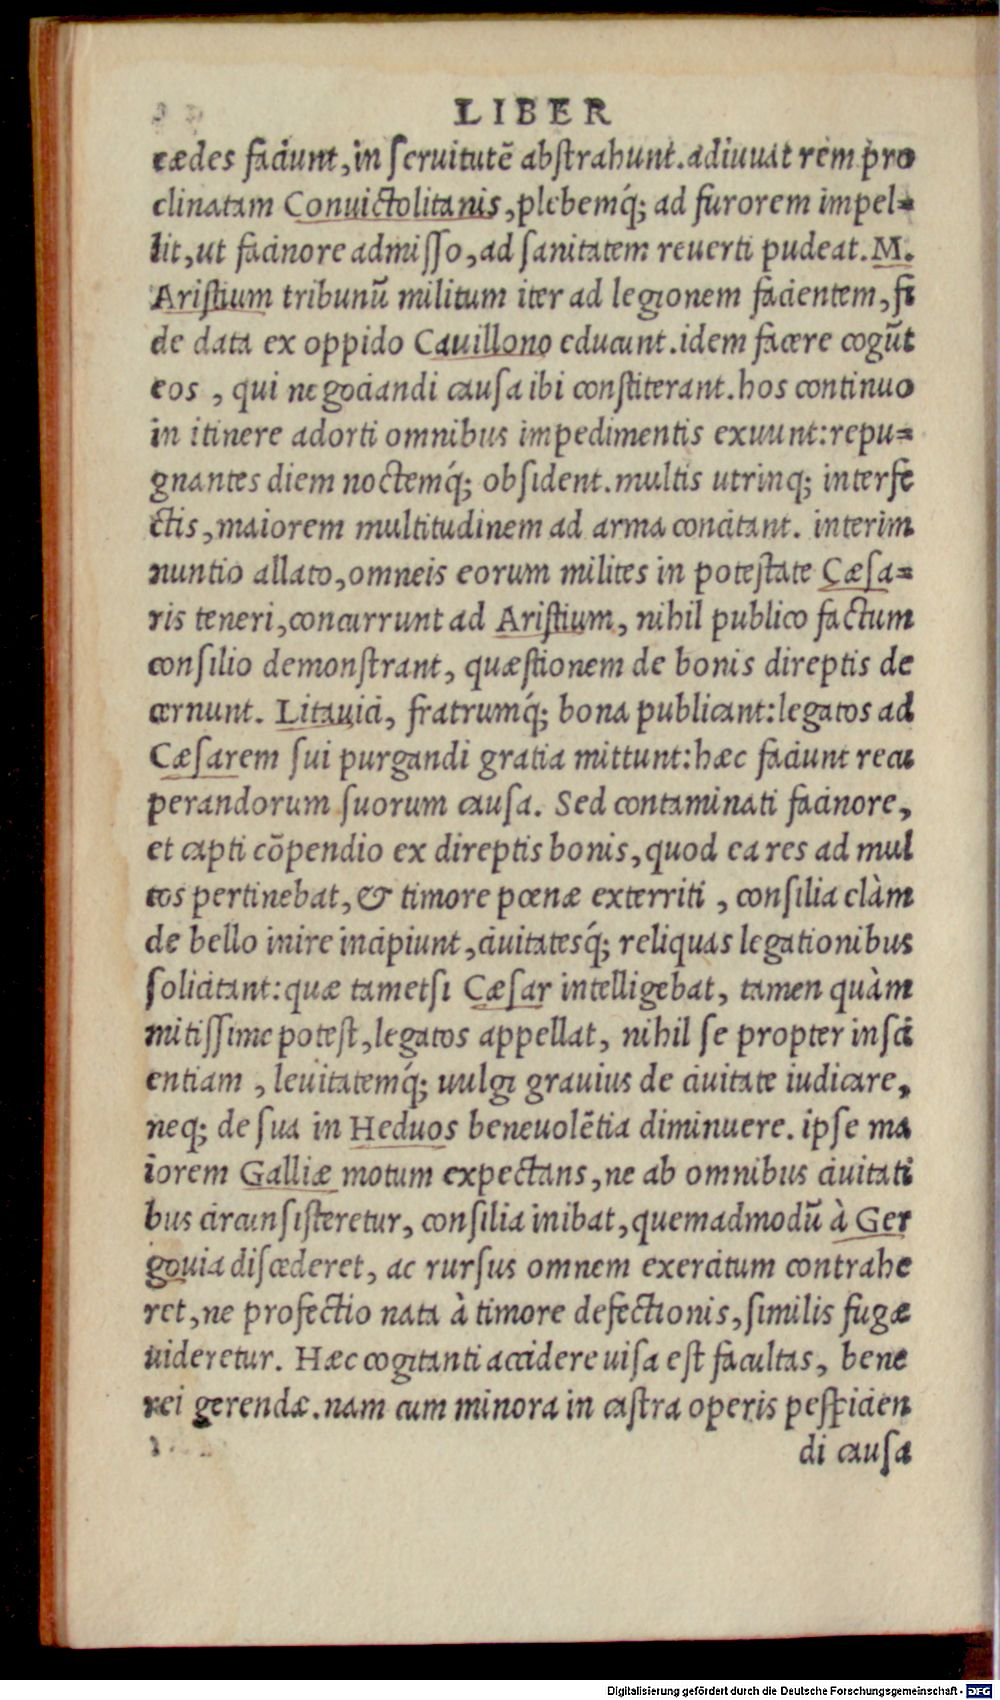 LIBER
cædes faciunt, in seruitutē abstrahunt. adiuuat rem pro
clinatam Conuictolitanis, plebemq́; ad furorem impel=
lit, ut facinore admisso, ad sanitatem reuerti pudeat. M.
Aristium tribunū militum iter ad legionem facientem, fi
de data ex oppido Cauillono educunt. idem facere cogūt
eos, qui negociandi causa ibi constiterant. hos continuo
in itinere adorti omnibus impedimentis exuunt: repu=
gnantes diem noctemq́; obsident. multis utrinq; interfe
ctis, maiorem multitudinem ad arma concitant. interim
nuntio allato, omneis eorum milites in potestate Cæsa=
ris teneri, concurrunt ad Aristium, nihil publico factum
consilio demonstrant, quæstionem de bonis direptis de
cernunt. Litauici, fratrumq́; bona publicant: legatos ad
Cæsarem sui purgandi gratia mittunt: hæc faciunt recu
perandorum suorum causa. Sed contaminati facinore,
et capti cōpendio ex direptis bonis, quod ea res ad mul
tos pertinebat, & timore pœnæ exterriti, consilia clàm
de bello inire incipiunt, ciuitatesq́; reliquas legationibus
solicitant: quæ tametsi Cæsar intelligebat, tamen quàm
mitissime potest, legatos appellat, nihil se propter insci
entiam, leuitatemq́; uulgi grauius de ciuitate iudicare,
neq; de sua in Heduos beneuolētia diminuere. ipse ma
iorem Galliæ motum expectans, ne ab omnibus ciuitati
bus circunsisteretur, consilia inibat, quemadmodū à Ger
gouia discederet, ac rursus omnem exercitum contrahe
ret, ne profectio nata à timore defectionis, similis fugæ
uideretur. Hæc cogitanti accidere uisa est facultas, bene
rei gerendæ. nam cum minora in castra operis pespicien
di causa
Digitalisierung gefördert durch die Deutsche Forschungsgemeinschaft - DFG